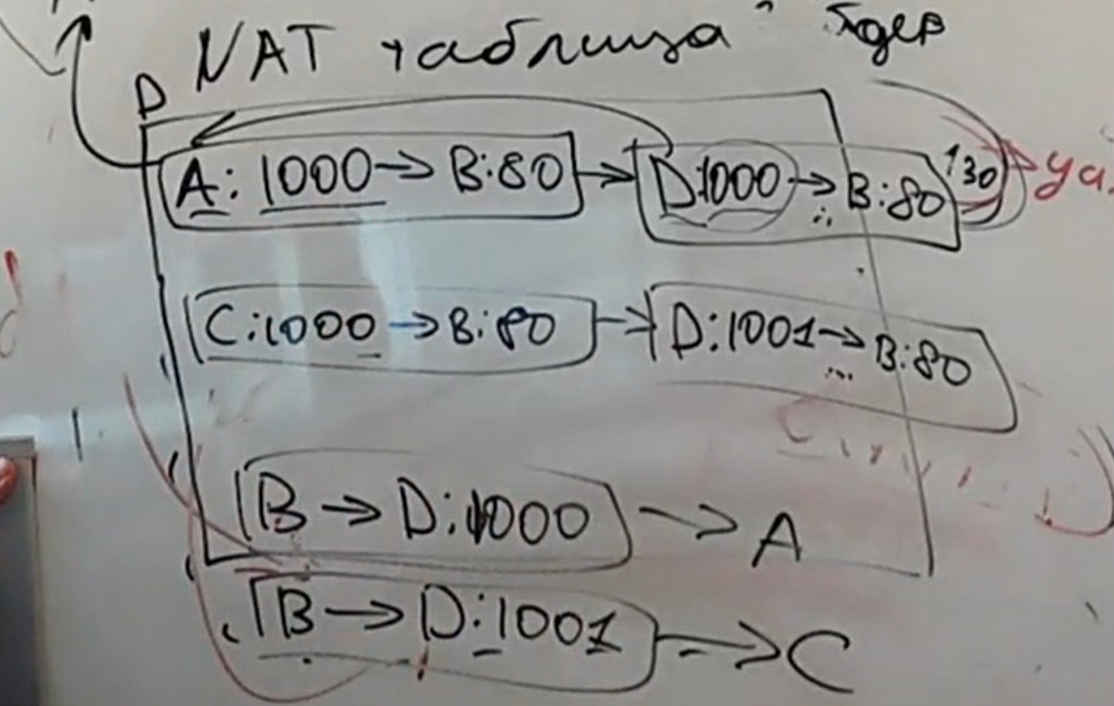 NAT таблица
D
A: 1000 → B:80 → D:1000 → B:80 130
C:1000 → B:80 → D:1001 → B:80
B → D:1000 → A
B → D:1001 → C